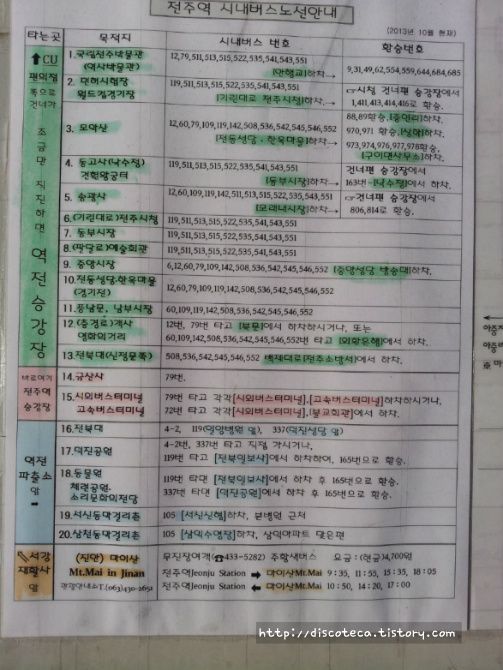 전주역 시내버스노선안내
(2013년 10월 현재)
타는곳 목적지 시내버스 번호 환승번호
⬆CU
편의점
쪽으로
건너가
조금만 직진하면 역전승강장
1.국립전주박물관
(역사박물관)
12,79,511,513,515,522,535,541,543,551
[안행교]하차→
9,31,49,62,554,559,644,684,685
2. 면허시험장
월드컵경기장
119,511,513,515,522,535,541,543,551
[기린대로 전주시청]하차→
☞시청 건너편 승강장에서
1,411,413,414,416로 환승.
3. 모악산
12,60,79,109,119,142,508,536,542,545,546,552
[전동성당·한옥마을]하차→
88,89환승.[중인리]하차.
970,971 환승.
973,974,976,977,978환승.
[구이면사무소]하차.
4. 동고사(낙수정)
견훤왕궁터
119,511,513,515,522,535,541,543,551
[동부시장]하차→
건너편 승강장에서
163번→[낙수정]에서 하차.
5. 송광사
12,60,109,119,142,511,513,515,522,535,543,551
[모래내시장]하차→
☞건너편 승강장에서
806,814로 환승.
6.(기린대로)전주시청
119,511,513,515,522,535,541,543,551
7. 동부시장
119,511,513,515,522,535,541,543,551
8.(팔달로)예술회관
119,511,513,515,522,535,541,543,551
9. 중앙시장
6,12,60,79,109,119,142,508,536,542,545,546,552 [중앙성당 방송대]하차.
10.전동성당·한옥마을
(경기전)
12,60,79,109,119,142,508,536,542,545,546,552
11.풍남문, 남부시장
60,109,119,142,508,536,542,545,546,552
12.(충경로)객사
영화의거리
12번, 79번 타고 [북문]에서 하차하시거나, 또는
60,109,142,508,536,542,545,546,552번 타고 에서 하차.
13.전북대(신정문쪽)
508,536,542,545,546,552 백제대로[전주소방서]에서 하차.
바로여기
전주역
승강장
14.금산사
79번.
15.시외버스터미널
고속버스터미널
79번 타고 각각[시외버스터미널],[고속버스터미널]하차하시거나,
72번 타고 각각[시외버스터미널],[불교회관]에서 하차.
역전
파출소
앞
➡
16.전북대
4-2, 119(영양병원 앞), 337(덕진성당 앞)
17.덕진공원
4-2번, 337번 타고 직접 가시거나,
119번 타고 [전북일보사]에서 하차하여, 165번으로 환승.
18.동물원
체련공원·
소리문화의전당
119번 타면 [전북일보사]에서 하차 후 165번으로 환승.
337번 타면 [덕진공원]에서 하차 후 165번으로 환승.
19.서신동막걸리촌
105 [서신신협]하차, 본병원 근처
20.삼천동막걸리촌
105 [삼익수영장]하차, 삼익아파트 맞은편
서강
재활사
앞
(진안) 마이산
Mt.Mai in Jinan
관광안내소T.(063)430-2651
무진장여객(☎433-5282) 주황색버스 요금:(현금)4,700원
전주역Jeonju Station ➡ 마이산Mt.Mai 9:35, 11:55, 15:35, 18:05
전주역Jeonju Station ⬅ 마이산Mt.Mai 10:50, 14:20, 17:00
http://discoteca.tistory.com